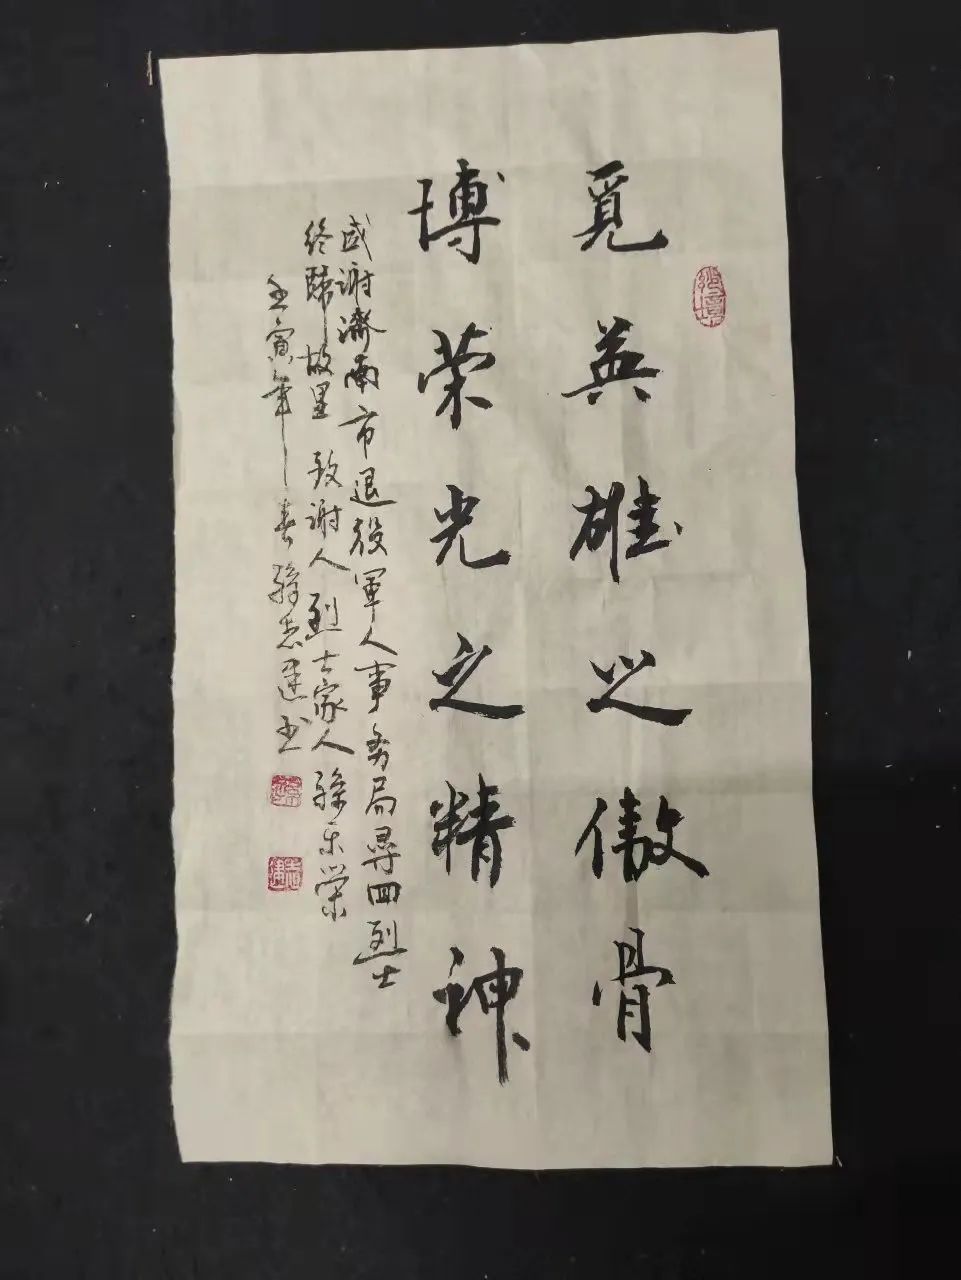 觅英雄之傲骨
博荣光之精神
感谢济南市退役军人事务局寻回烈士
终归故里 致谢人烈士家人 孙乐荣
壬寅年春孙志建书